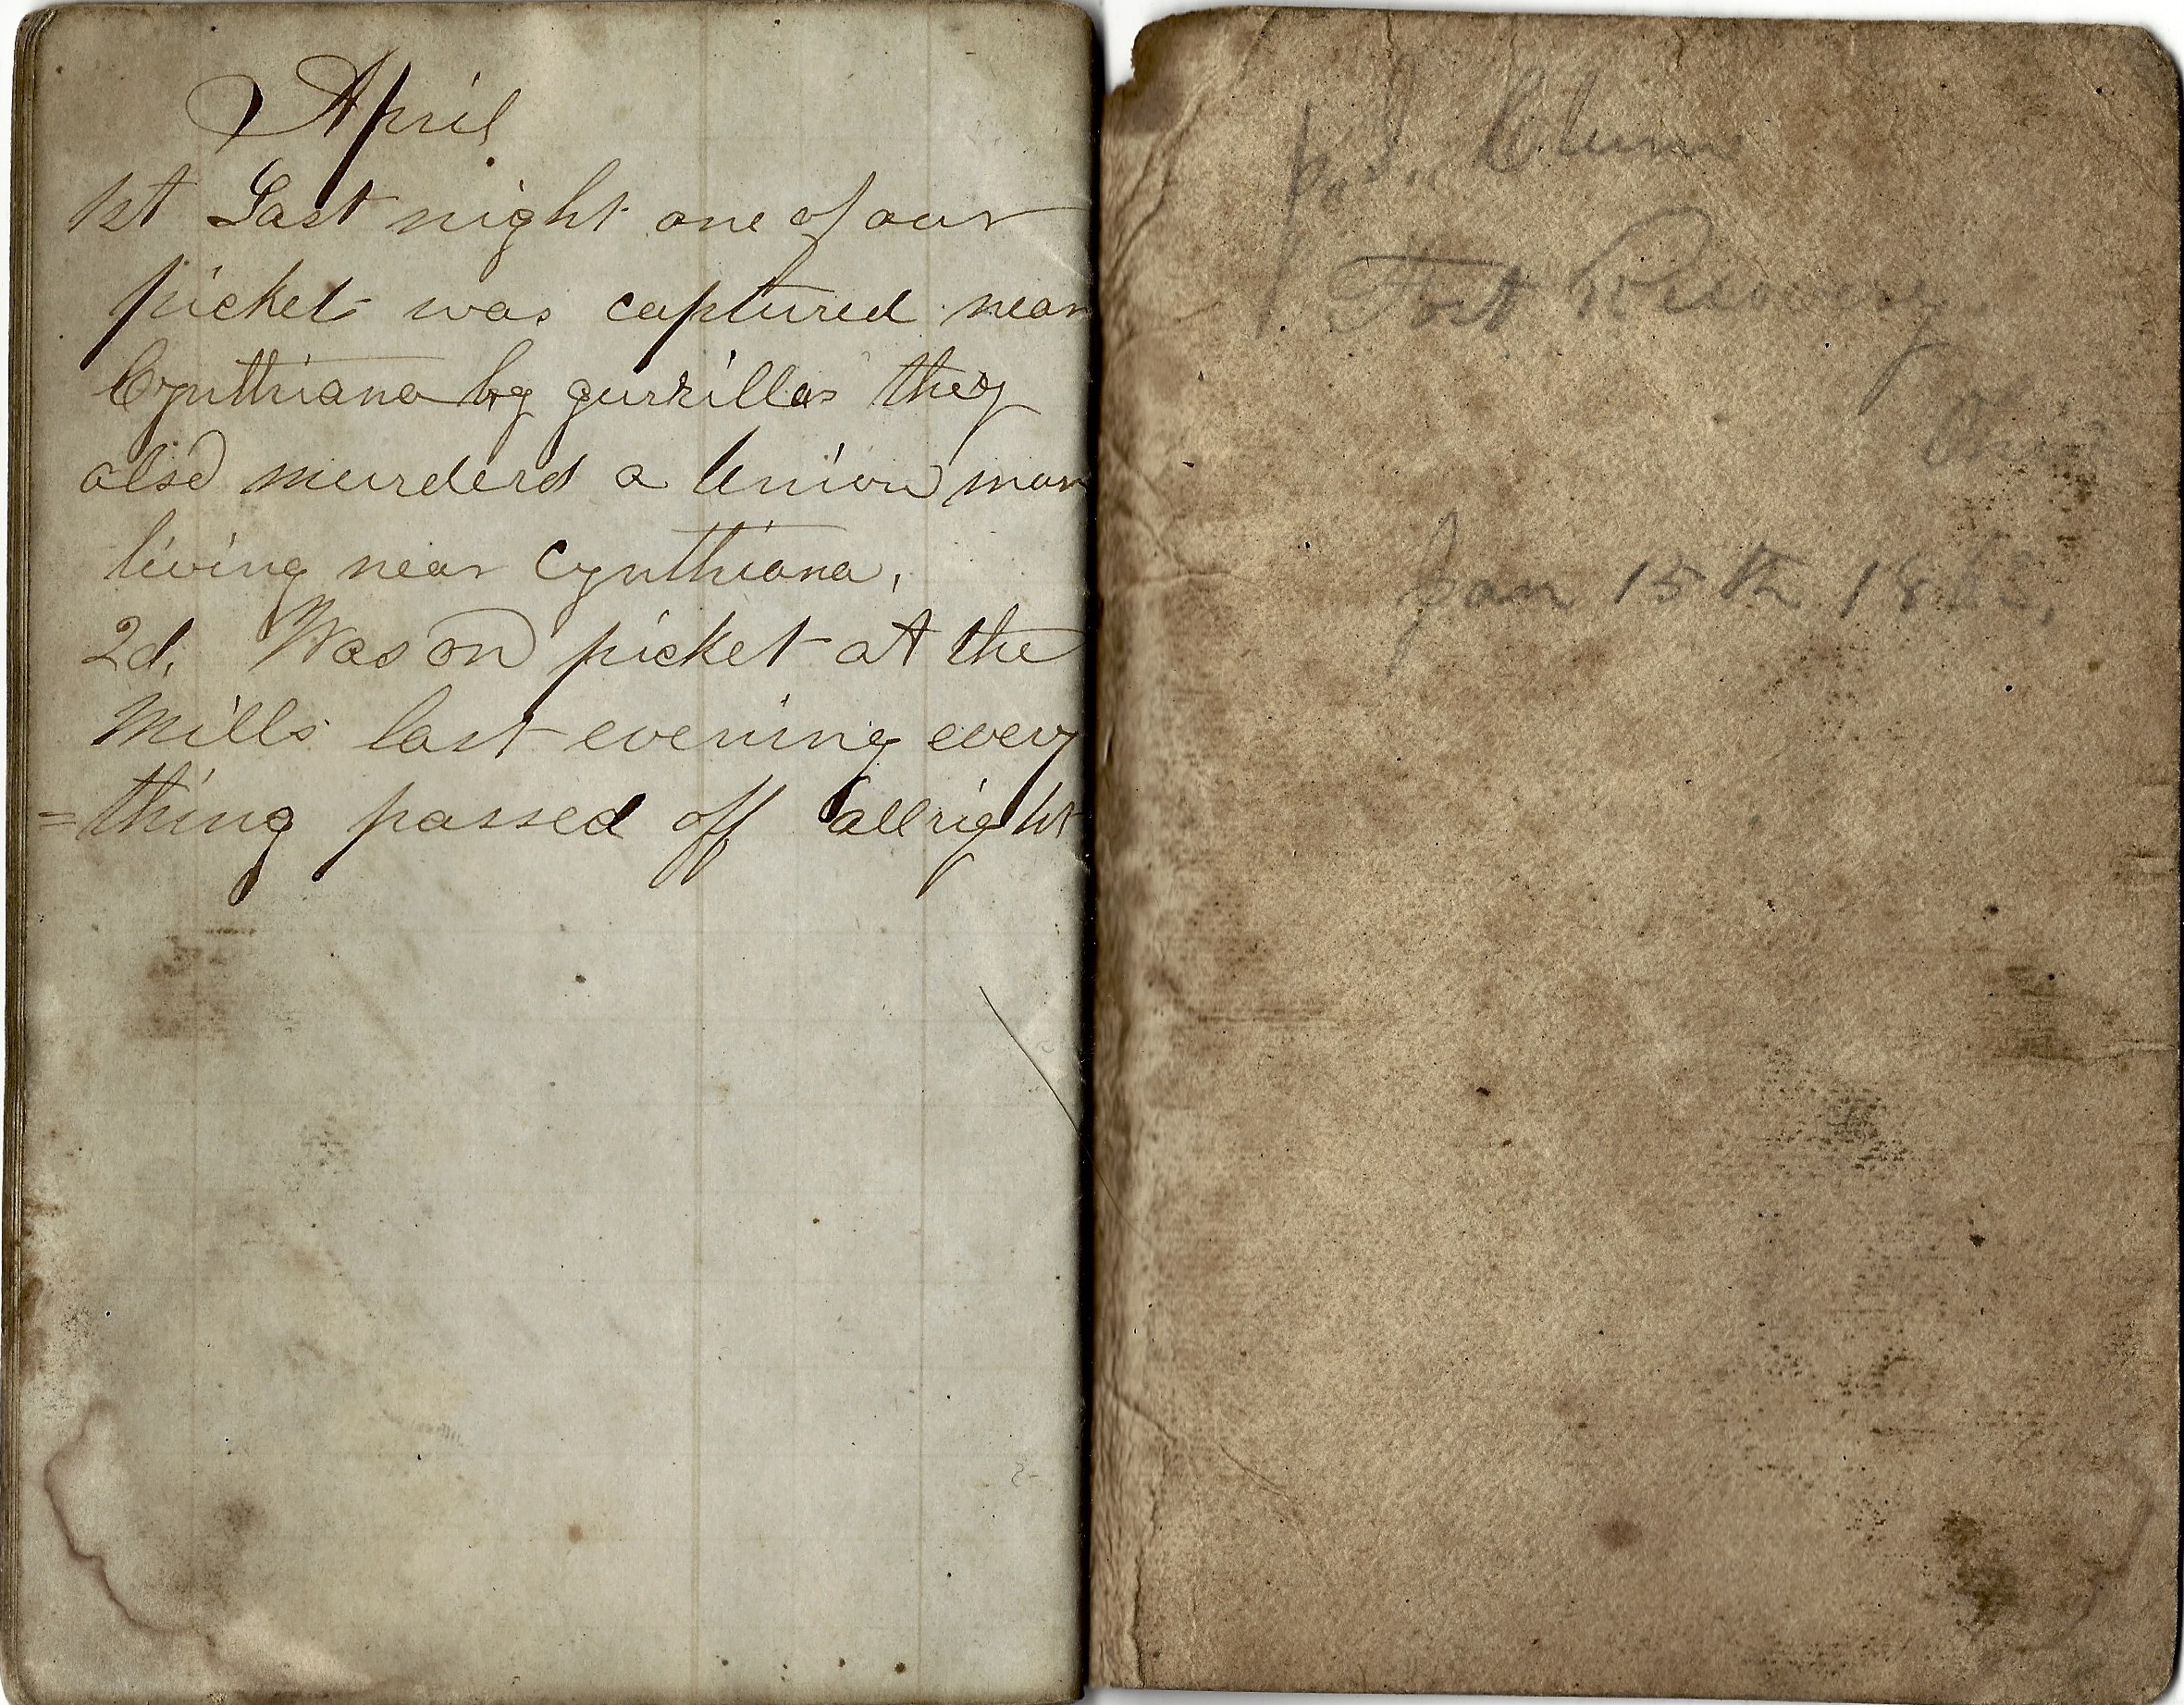 April
1st Last night one of our
picket was captured near
Cynthiana by gurrillas they
also murderd a Union man
living near Cynthiana,
2d, Was on picket at the
Mills last evening every
=thing passed off allright
Clum
Fort Recovery
Ohio
Jan 15th